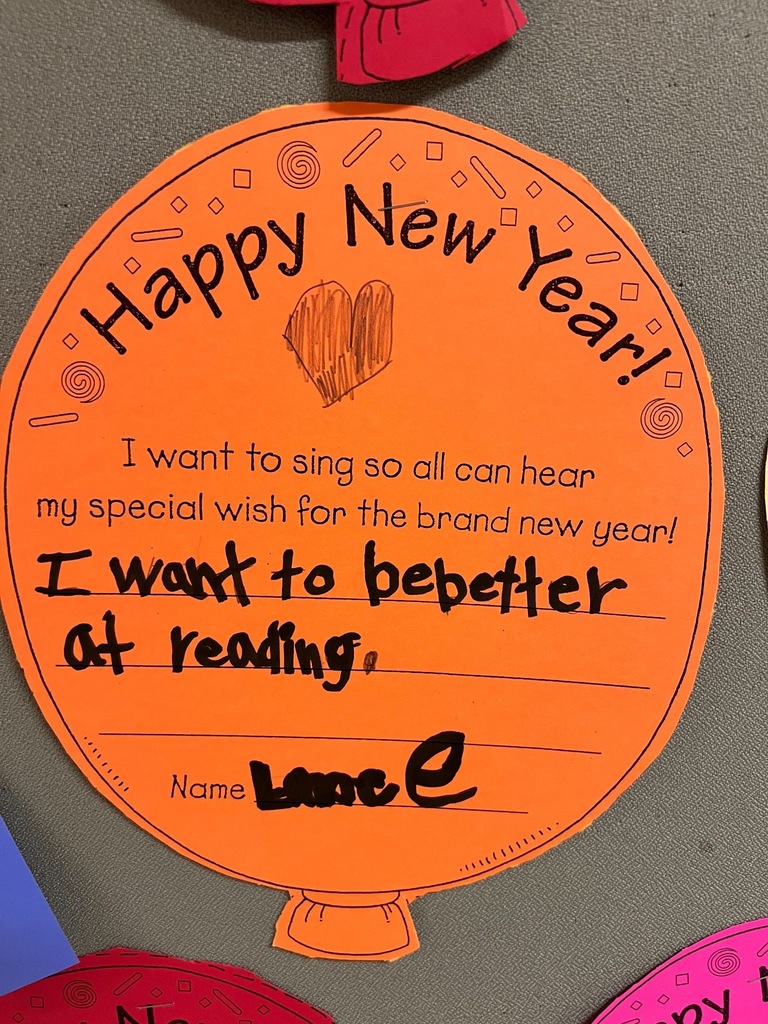 Happy New Year!
I want to sing so all can hear
my special wish for the brand new year!
I want to bebetter
at reading.
Name Lance
New
ppy